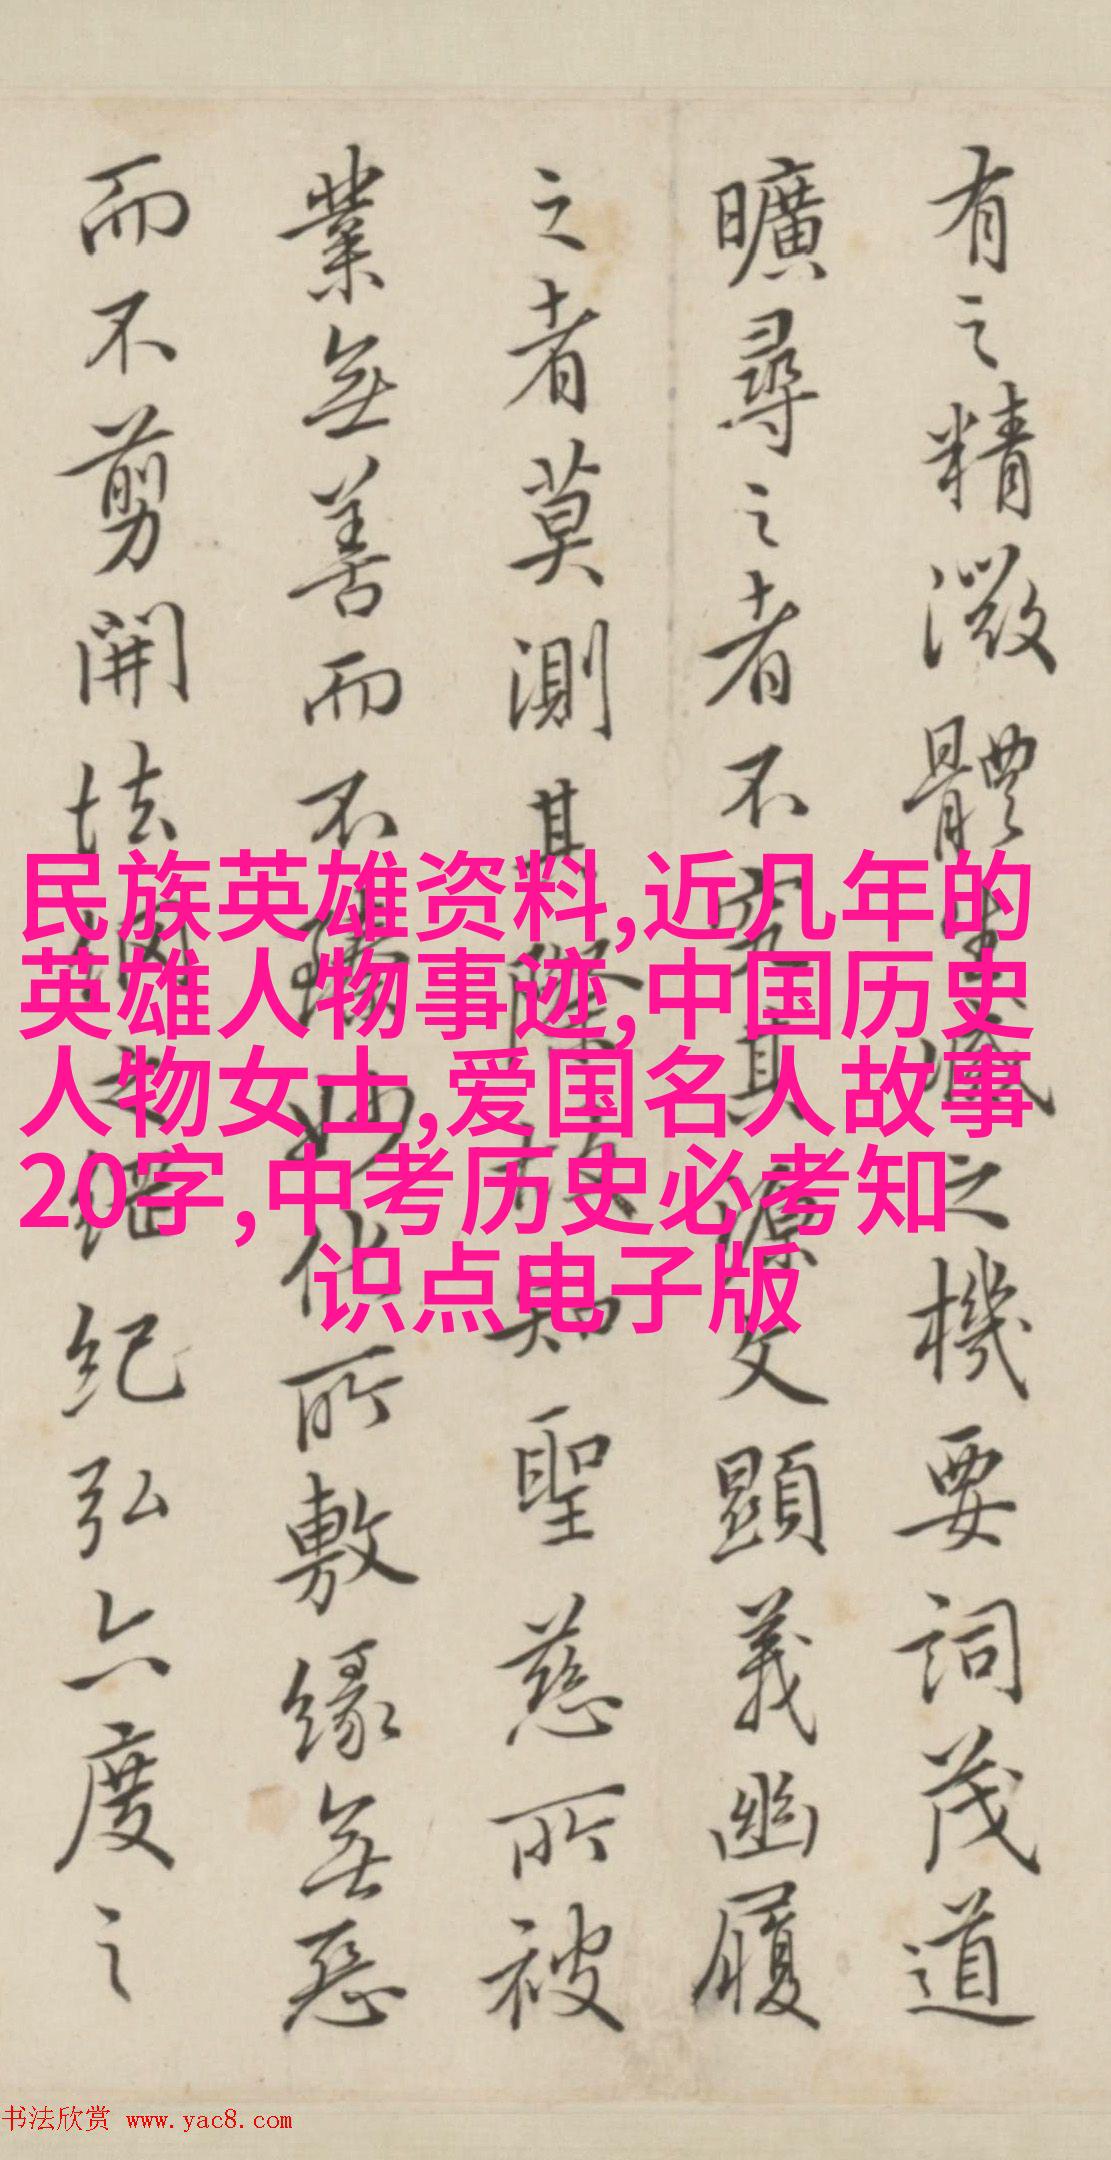 有之精微體生滅之機要詞茂道
曠尋之者不究其源文顯義幽履
之者莫測其際故知聖慈所被
業無善而不臻妙化所敷緣無惡
而不剪開法網之綱紀弘六度之
民族英雄资料,近几年的
英雄人物事迹,中国历史
人物女士,爱国名人故事
20字,中考历史必考知
识点电子版
书法欣赏 www.yac8.com